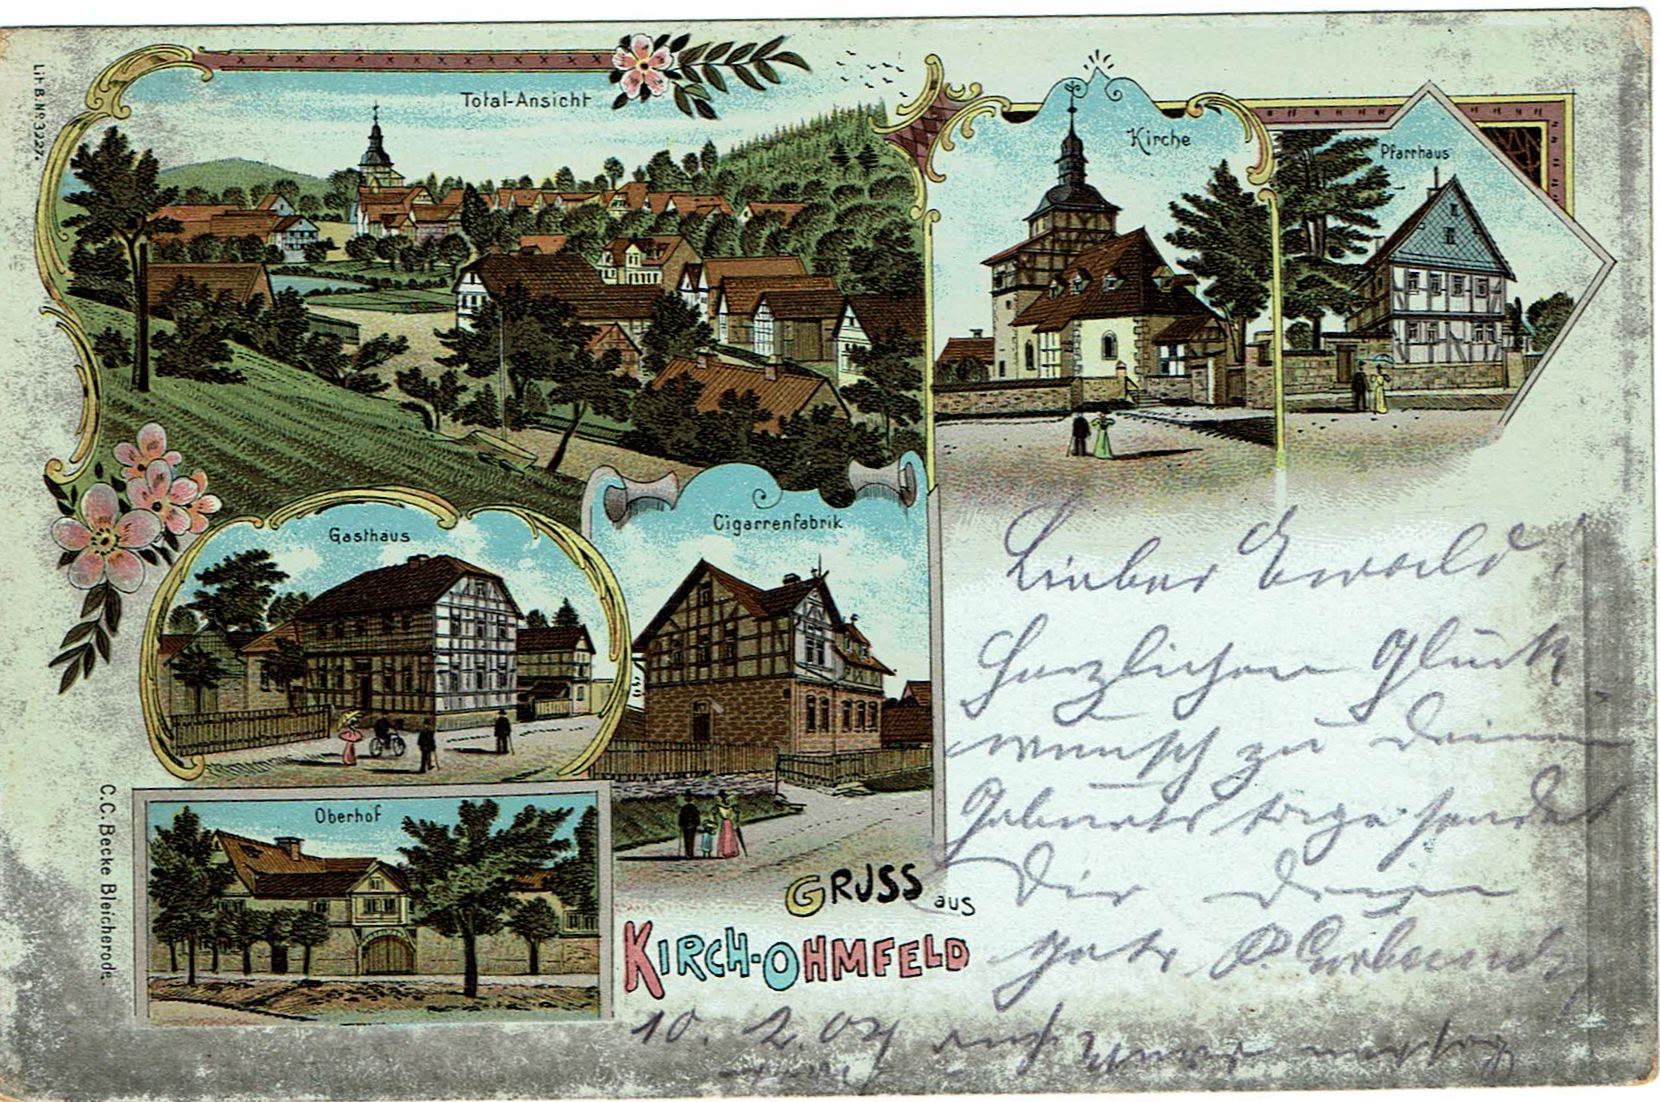 Lit. B. No 3227.
Total-Ansicht
Kirche
Pfarrhaus
Gasthaus
Cigarrenfabrik
Oberhof
C.C. Becke Bleicherode.
GRUSS aus
KIRCH-OHMFELD
Lieber Ewald!
Herzlichen Glück
wunsch zu deinem
Geburtstage sendet
Dir Deine
10. 2. 04